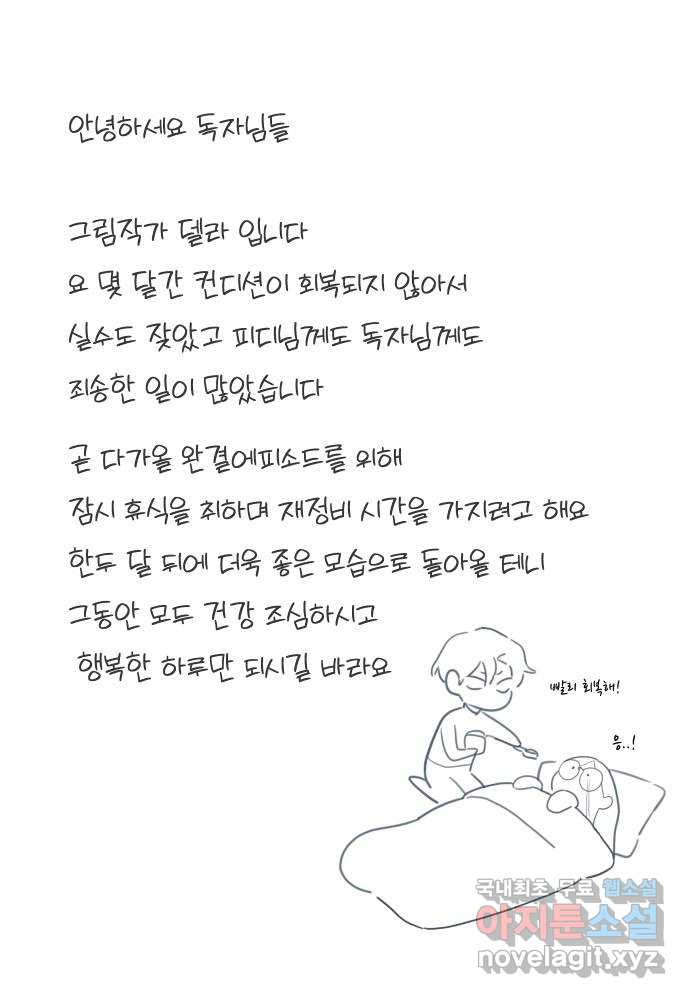 안녕하세요 독자님들
그림작가 델라 입니다
요 몇 달간 컨디션이 회복되지 않아서
실수도 잦았고 피디님께도 독자님께도
죄송한 일이 많았습니다
곧 다가올 완결에피소드를 위해
잠시 휴식을 취하며 재정비 시간을 가지려고 해요
한두 달 뒤에 더욱 좋은 모습으로 돌아올 테니
그동안 모두 건강 조심하시고
행복한 하루만 되시길 바라요
빨리 회복해!
응..!
국내최초 무료 웹소설
아지툰소설
novelagit.xyz